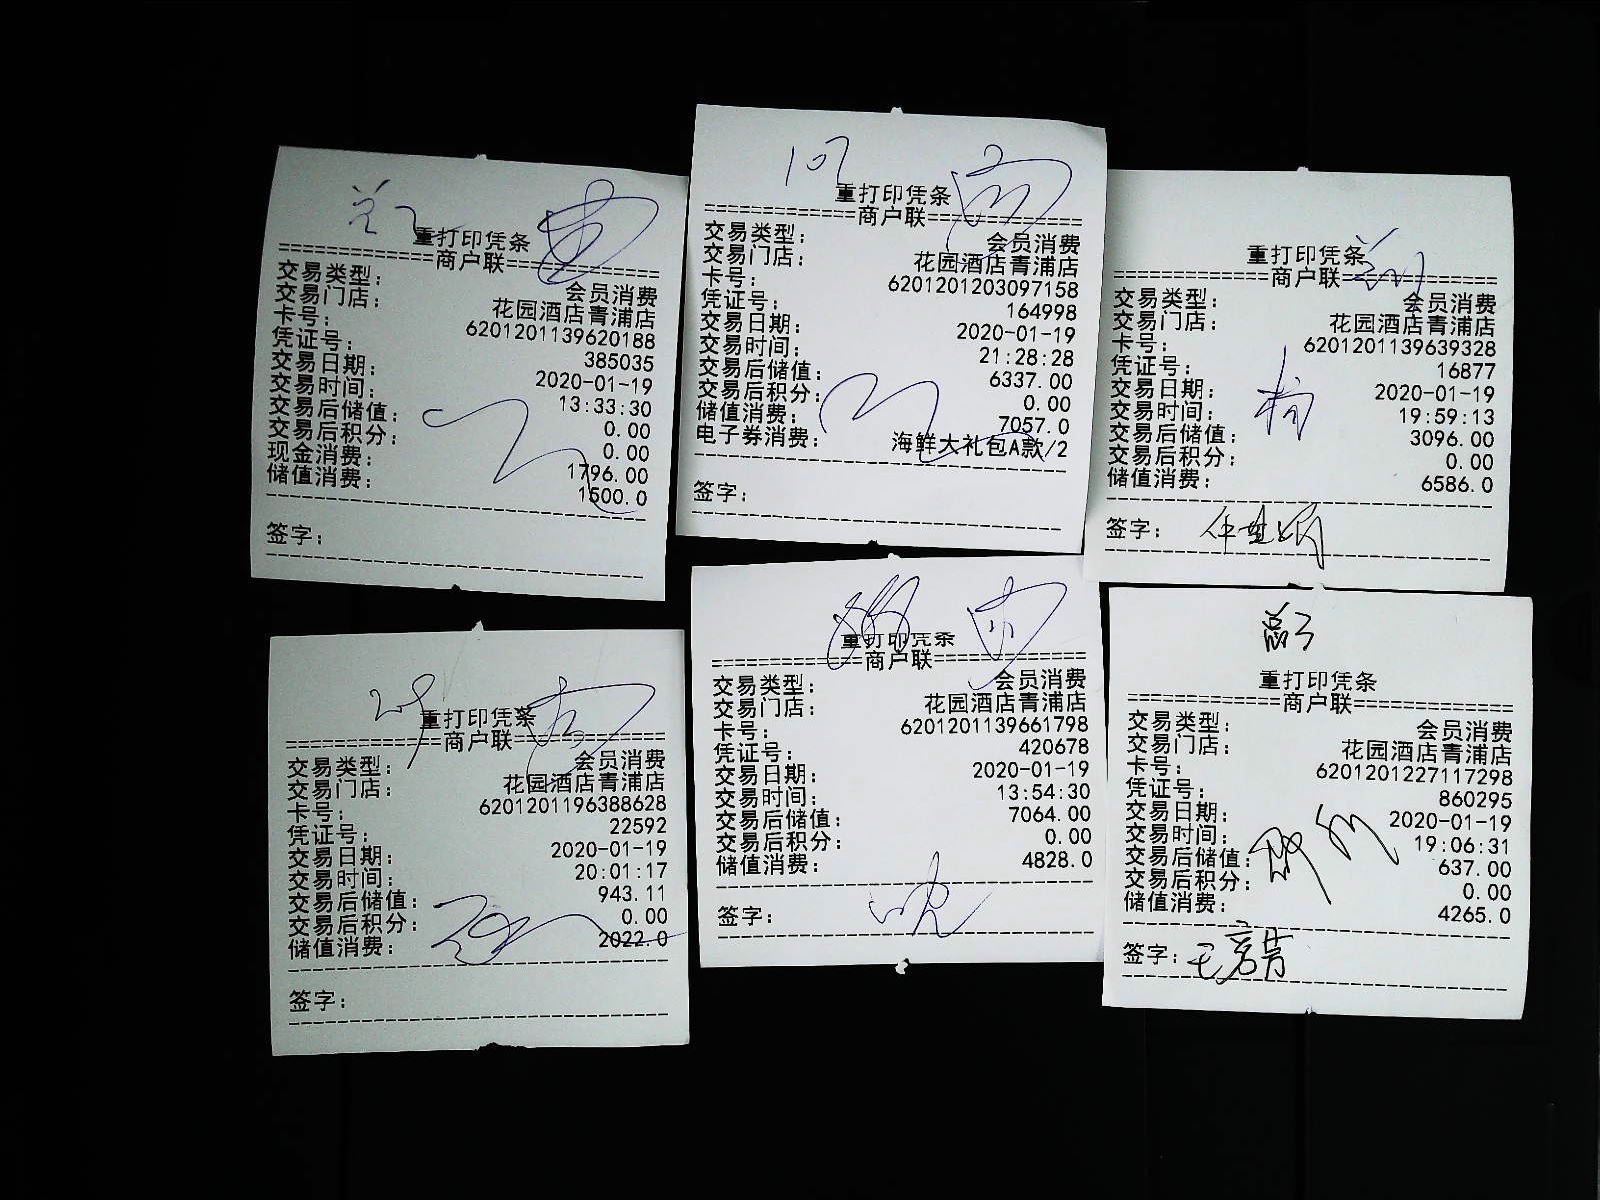 重打印凭条
============商户联============
交易类型: 会员消费
交易门店: 花园酒店青浦店
卡号: 6201201139620188
凭证号: 385035
交易日期: 2020-01-19
交易时间: 13:33:30
交易后储值: 0.00
交易后积分: 0.00
现金消费: 1796.00
储值消费: 1500.0
签字:
107
重打印凭条
============商户联============
交易类型: 会员消费
交易门店: 花园酒店青浦店
卡号: 6201201203097158
凭证号: 164998
交易日期: 2020-01-19
交易时间: 21:28:28
交易后储值: 6337.00
交易后积分: 0.00
储值消费: 7057.0
电子券消费: 海鲜大礼包A款/2
签字:
重打印凭条
============商户联============
交易类型: 会员消费
交易门店: 花园酒店青浦店
卡号: 6201201139639328
凭证号: 16877
交易日期: 2020-01-19
交易时间: 19:59:13
交易后储值: 3096.00
交易后积分: 0.00
储值消费: 6586.0
签字:
重打印凭条
============商户联============
交易类型: 会员消费
交易门店: 花园酒店青浦店
卡号: 6201201196388628
凭证号: 22592
交易日期: 2020-01-19
交易时间: 20:01:17
交易后储值: 943.11
交易后积分: 0.00
储值消费: 2022.0
签字:
重打印凭条
============商户联============
交易类型: 会员消费
交易门店: 花园酒店青浦店
卡号: 6201201139661798
凭证号: 420678
交易日期: 2020-01-19
交易时间: 13:54:30
交易后储值: 7064.00
交易后积分: 0.00
储值消费: 4828.0
签字:
重打印凭条
============商户联============
交易类型: 会员消费
交易门店: 花园酒店青浦店
卡号: 6201201227117298
凭证号: 860295
交易日期: 2020-01-19
交易时间: 19:06:31
交易后储值: 637.00
交易后积分: 0.00
储值消费: 4265.0
签字: